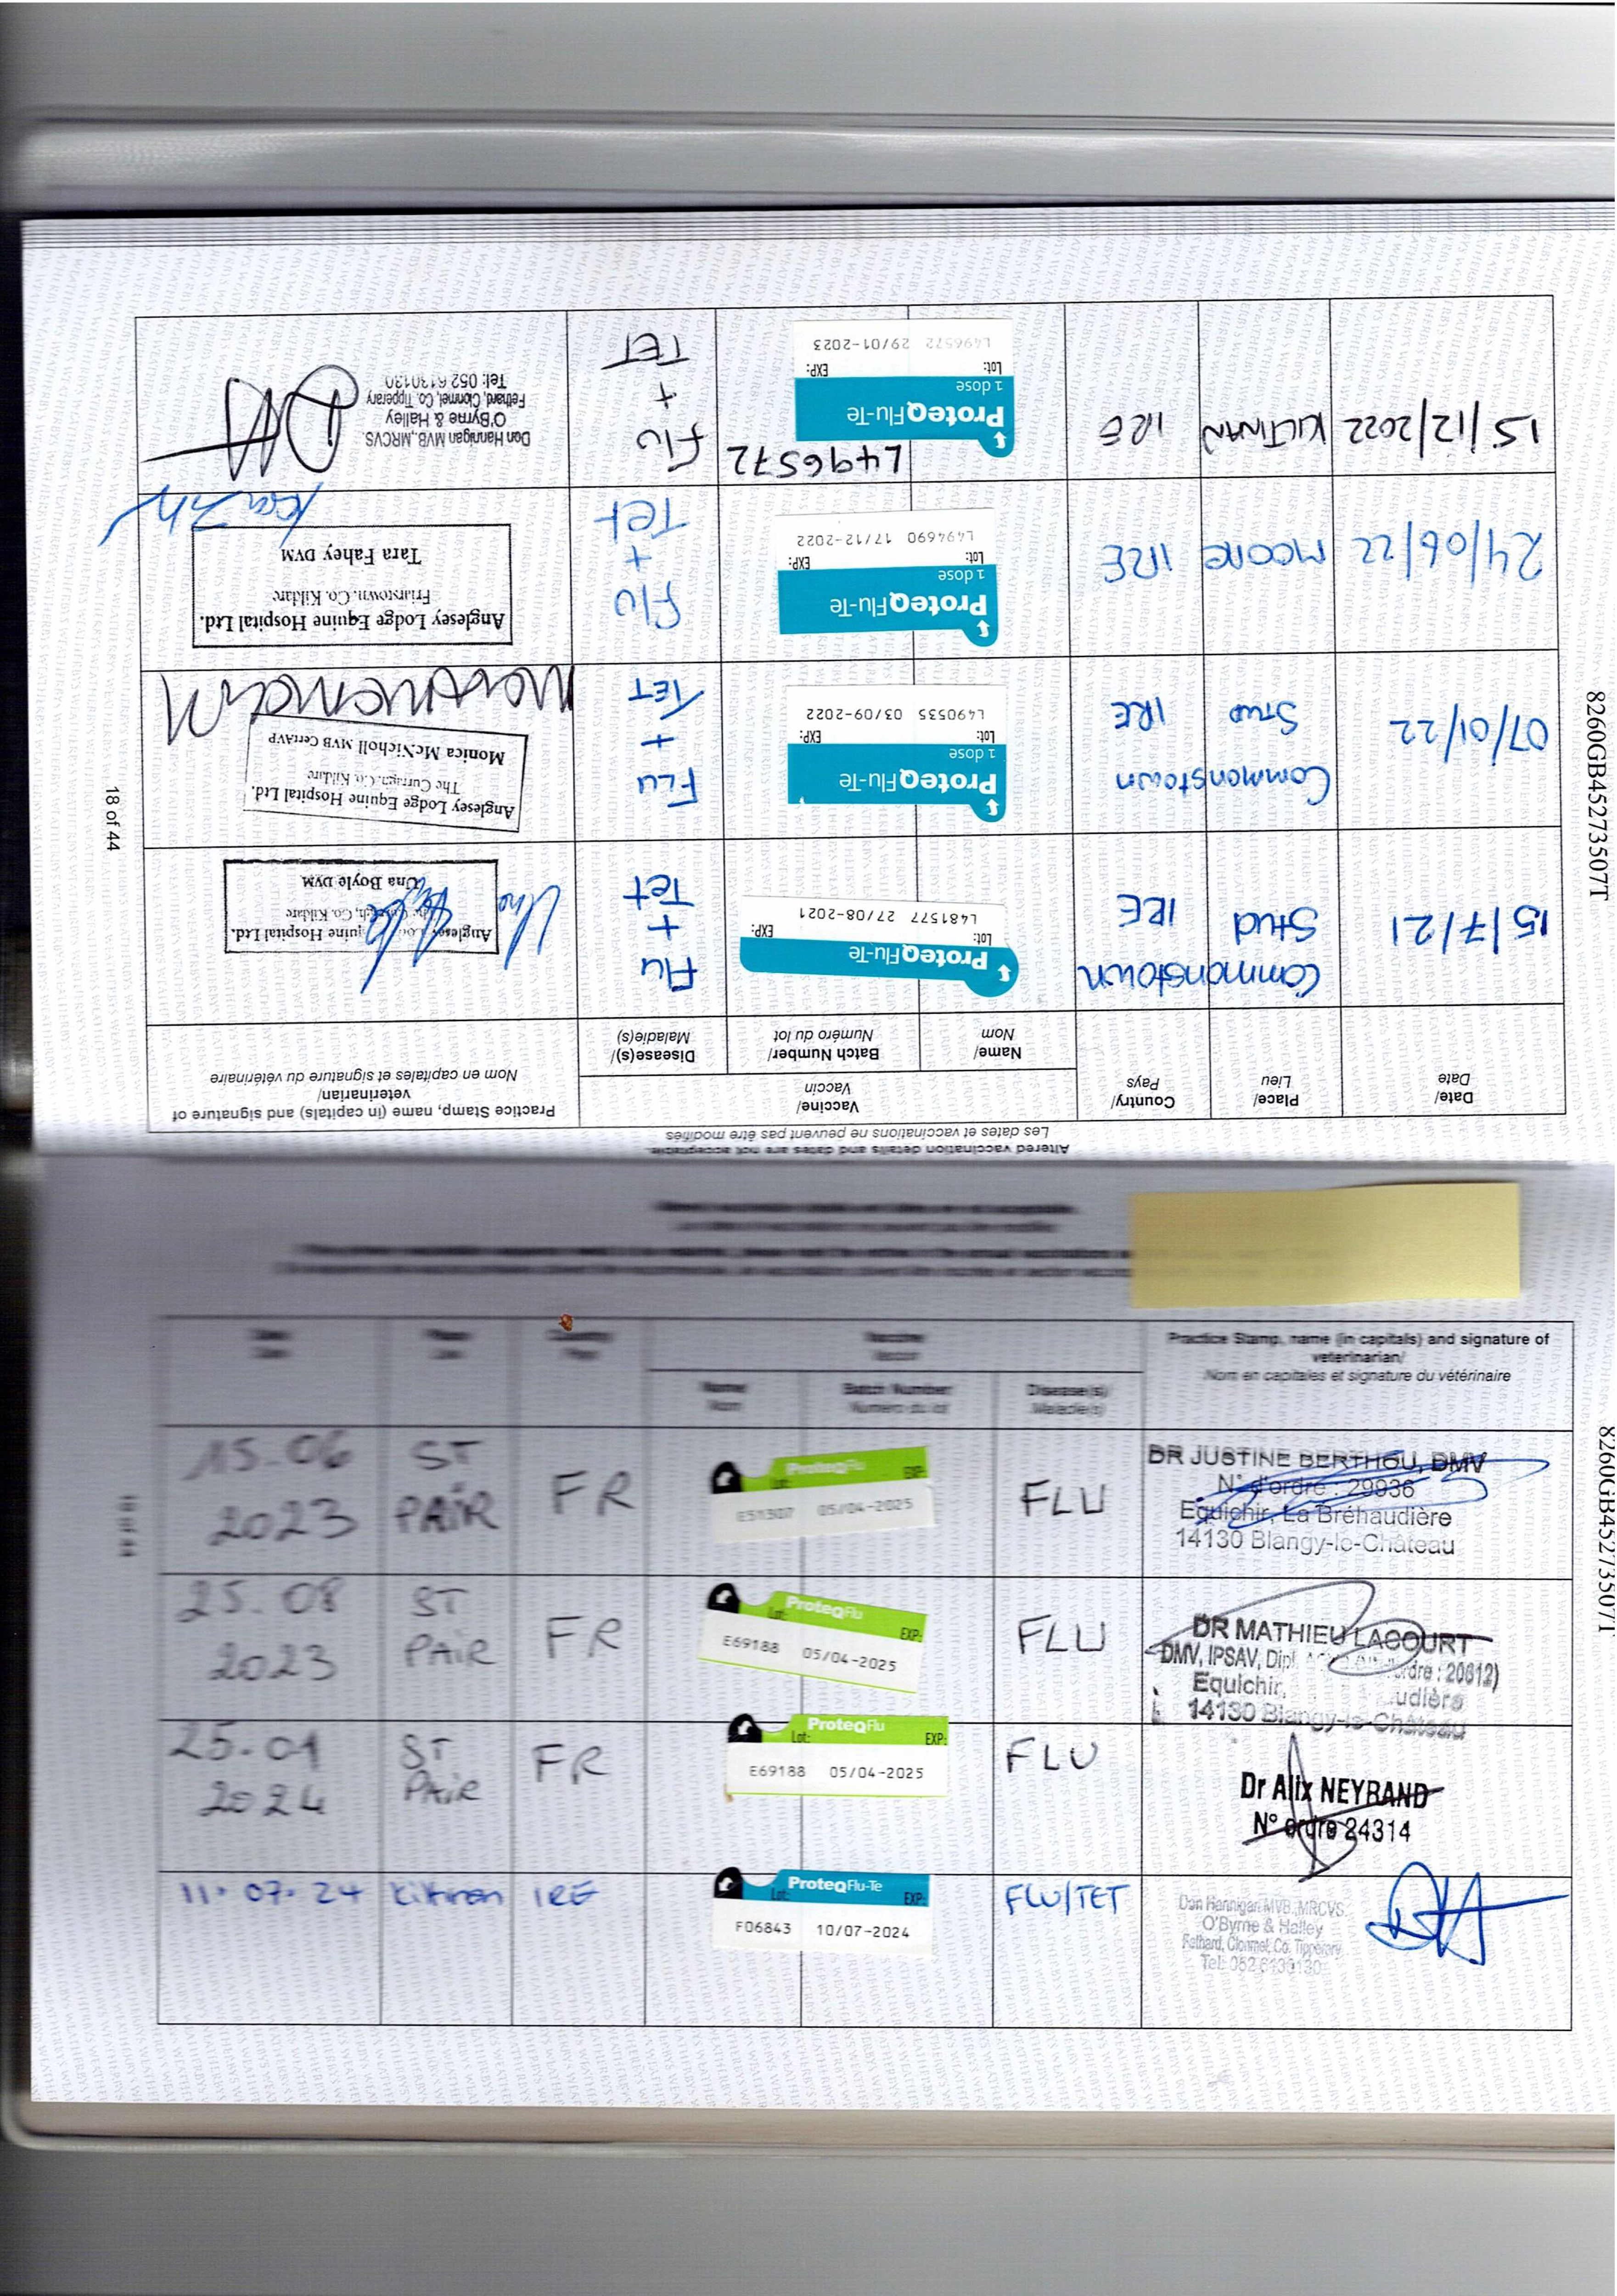 Altered vaccination details and dates are not acceptable.
Les dates et vaccinations ne peuvent pas être modifiés
Date/
Date
Place/
Lieu
Country/
Pays
Vaccine/
Vaccin
Name/
Nom
Batch Number/
Numéro du lot
Disease(s)/
Maladie(s)
Practice Stamp, name (in capitals) and signature of
veterinarian/
Nom en capitales et signature du vétérinaire
15/7/21
Commonstown
Stud
IRE
ProteqFlu-Te
Lot:
EXP:
L481577 27/08-2021
Flu
+
Tet
Anglesey Lodge Equine Hospital Ltd.
Una Boyle DVM
07/01/22
Commonstown
Stud
IRE
ProteqFlu-Te
1 dose
Lot:
EXP:
L490535 03/09-2022
Flu
+
TET
Anglesey Lodge Equine Hospital Ltd.
The Curragh, Co. Kildare
Monica McNicholl MVB CertAVP
24/06/22
MOONE
IRE
ProteqFlu-Te
1 dose
Lot:
EXP:
L494690 17/12-2022
Flu
+
Tet
Anglesey Lodge Equine Hospital Ltd.
Friarstown, Co. Kildare
Tara Fahey DVM
15/12/2022
KILTINAN
IRE
L496572
ProteqFlu-Te
1 dose
Lot:
EXP:
L496572 29/01-2023
Flu
+
TET
Dan Hannigan MVB., MRCVS.
O'Byrne & Halley
Fethard, Clonmel, Co. Tipperary
Tel: 052 6130130
18 of 44
8260GB45273507T
Practice Stamp, name (in capitals) and signature of
veterinarian/
Nom en capitales et signature du vétérinaire
Name
Nom
Batch Number
Numéro du lot
Disease(s)/
Maladie(s)
15.06
2023
ST
PAIR
FR
ProteqFlu
Lot:
EXP:
E51307 05/04-2025
FLU
DR JUSTINE BERTHOU, DMV
N° d'ordre : 29936
Equichir, La Bréhaudière
14130 Blangy-le-Château
25.08
2023
ST
PAIR
FR
ProteqFlu
Lot:
EXP:
E69188 05/04-2025
FLU
DR MATHIEU LACOURT
DMV, IPSAV, Dipl. ordre : 20612)
Equichir,
14130 Blangy-le-Château
25.01
2024
ST
PAIR
FR
ProteqFlu
Lot:
EXP:
E69188 05/04-2025
FLU
Dr Alix NEYRAND
N° ordre 24314
11.07.24
Kiltinan
IRE
ProteqFlu-Te
Lot:
EXP:
F06843 10/07-2024
FLU/TET
Dan Hannigan MVB., MRCVS.
O'Byrne & Halley
Fethard, Clonmel, Co. Tipperary
Tel: 052 6130130
8260GB45273507T